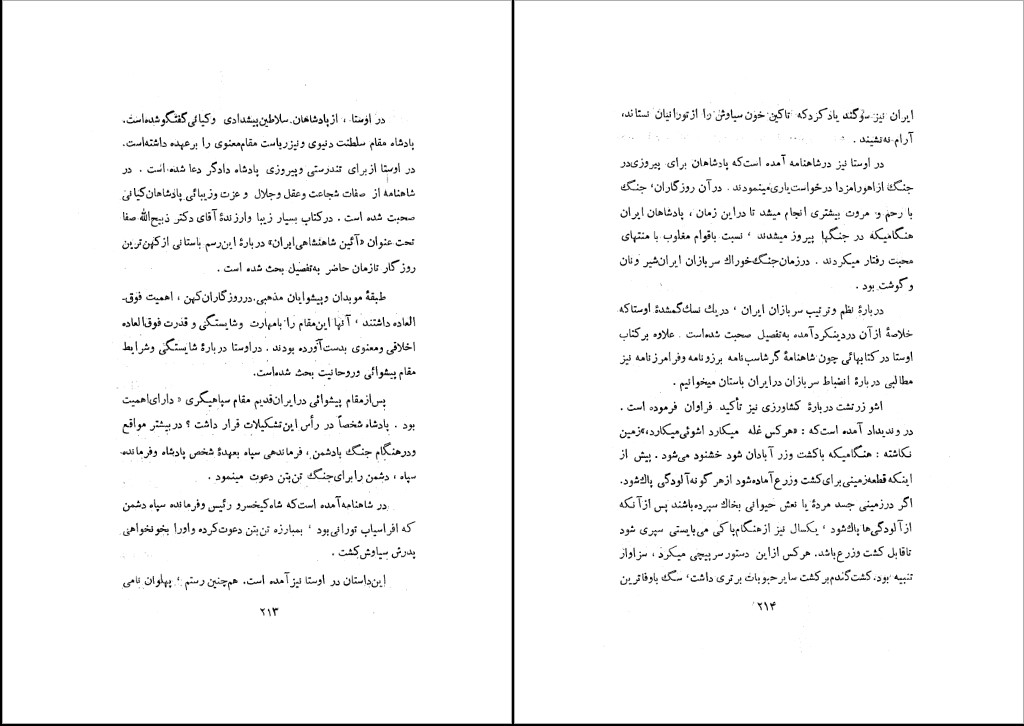 در اوستا ، از پادشاهان سلاطین پیشدادی و کیانی گفتگو شده است.
پادشاه مقام سلطنت دنیوی و نیز ریاست مقام معنوی را برعهده داشته است.
در اوستا از برای تندرستی و پیروزی پادشاه دادگر دعا شده است . در
شاهنامه از صفات شجاعت و عقل و جلال و عزت و زیبائی پادشاهان کیانی
صحبت شده است . در کتاب بسیار زیبا و ارزندهٔ آقای دکتر ذبیح‌الله صفا
تحت عنوان «آئین شاهنشاهی ایران» دربارهٔ این رسم باستانی از کهن‌ترین
روزگار تا زمان حاضر به تفصیل بحث شده است .
طبقهٔ موبدان و پیشوایان مذهبی، در روزگاران کهن ، اهمیت فوق‌ـ
العاده داشتند ، آنها این مقام را بامهارت و شایستگی و قدرت فوق‌العاده
اخلاقی و معنوی بدست آورده بودند . در اوستا دربارهٔ شایستگی و شرایط
مقام پیشوائی و روحانیت بحث شده است.
پس از مقام پیشوائی در ایران قدیم مقام سپاهیگری « دارای اهمیت
بود . پادشاه شخصاً در رأس این تشکیلات قرار داشت ؟ در بیشتر مواقع
و در هنگام جنگ بادشمن ، فرماندهی سپاه بعهدهٔ شخص پادشاه و فرمانده
سپاه ، دشمن را برای جنگ تن‌بتن دعوت مینمود .
در شاهنامه آمده است که شاه کیخسرو رئیس و فرمانده سپاه دشمن
که افراسیاب تورانی بود ، بمبارزه تن‌بتن دعوت کرده و او را بخونخواهی
پدرش سیاوش کشت .
این داستان در اوستا نیز آمده است. هم‌چنین رستم ، پهلوان نامی
۲۱۳
ایران نیز سوگند یاد کرد که تاکین خون سیاوش را از تورانیان نستاند،
آرام نه نشیند .
در اوستا نیز در شاهنامه آمده است که پادشاهان برای پیروزی در
جنگ از اهورامزدا درخواست یاری مینمودند . در آن روزگاران، جنگ
با رحم و مروت بیشتری انجام میشد تا در این زمان ، پادشاهان ایران
هنگامیکه در جنگها پیروز میشدند ، نسبت باقوام مغلوب با منتهای
محبت رفتار میکردند . در زمان جنگ خوراک سربازان ایران شیر و نان
و گوشت بود .
دربارهٔ نظم و ترتیب سربازان ایران ، در یک نسک گمشدهٔ اوستا که
خلاصهٔ از آن در دینکرد آمده به تفصیل صحبت شده است . علاوه بر کتاب
اوستا در کتابهائی چون شاهنامهٔ گرشاسب‌نامه برزونامه و فرامرزنامه نیز
مطالبی دربارهٔ انضباط سربازان در ایران باستان میخوانیم .
اشو زرتشت دربارهٔ کشاورزی نیز تأکید فراوان فرموده است .
در وندیداد آمده است که : «هرکس غله میکارد اشوئی میکارد،» زمین
نکاشته : هنگامیکه باکشت و زر آبادان شود خشنود می‌شود . پیش از
اینکه قطعه زمینی برای کشت و زرع آماده شود از هر گونه آلودگی پاک شود.
اگر در زمینی جسد مردهٔ یا نعش حیوانی بخاک سپرده باشند پس از آنکه
از آلودگی‌ها پاک شود ، یکسال نیز از هنگام پاکی می‌بایستی سپری شود
تا قابل کشت و زرع باشد. هرکس از این دستور سرپیچی میکرد ، سزاوار
تنبیه بود. کشت گندم بر کشت سایر حبوبات برتری داشت، سگ باوفاترین
۲۱۴